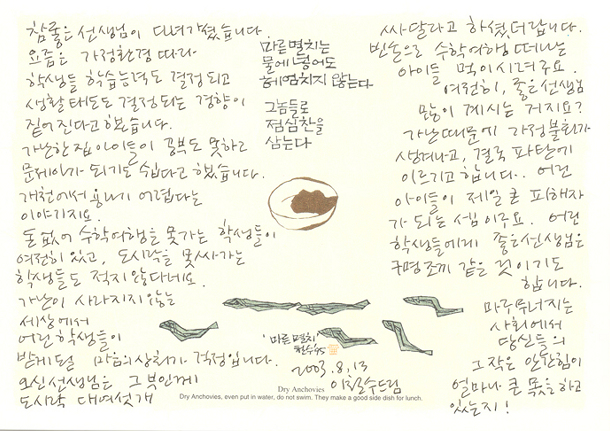 참 좋은 선생님이 다녀가셨습니다.
요즘은 가정환경 따라
학생들 학습능력도 결정되고
생활태도도 결정되는 경향이
짙어진다고 했습니다.
가난한 집 아이들이 공부도 못하고
문제아가 되기도 쉽다고 했습니다.
개천에서 용나기 어렵다는
이야기지요.
돈 없어 수학여행을 못가는 학생들이
여전히 있고, 도시락을 못싸가는
학생들도 적지 않다네요.
가난이 사라지지 않는
세상에서
어린 학생들이
받게될 마음의 상처가 걱정입니다.
오신 선생님은 그 분인께
도시락 대여섯 개
마른 멸치는
물에 넣어도
헤엄치지 않는다
그놈들로
점심찬을
삼는다
'마른 멸치'
철수 95
2003. 8. 13
이철수드림
Dry Anchovies
Dry Anchovies, even put in water, do not swim. They make a good side dish for lunch.
싸달라고 하셨더랍니다.
빈손으로 수학여행 떠나는
아이들 먹이시려구요.
여전히, 좋은 선생님
많이 계시는 거지요?
가난때문에 가정불화가
생겨나고, 결국 파탄에
이르기고 합니다.. 어린
아이들이 제일 큰 피해자
가 되는 셈이구요. 어린
학생들에게 좋은선생님은
구명조끼 같은 것이기도
합니다.
마구 무너지는
사회에서
당신들의
그 작은 안간힘이
얼마나 큰 몫을 하고
있는지!